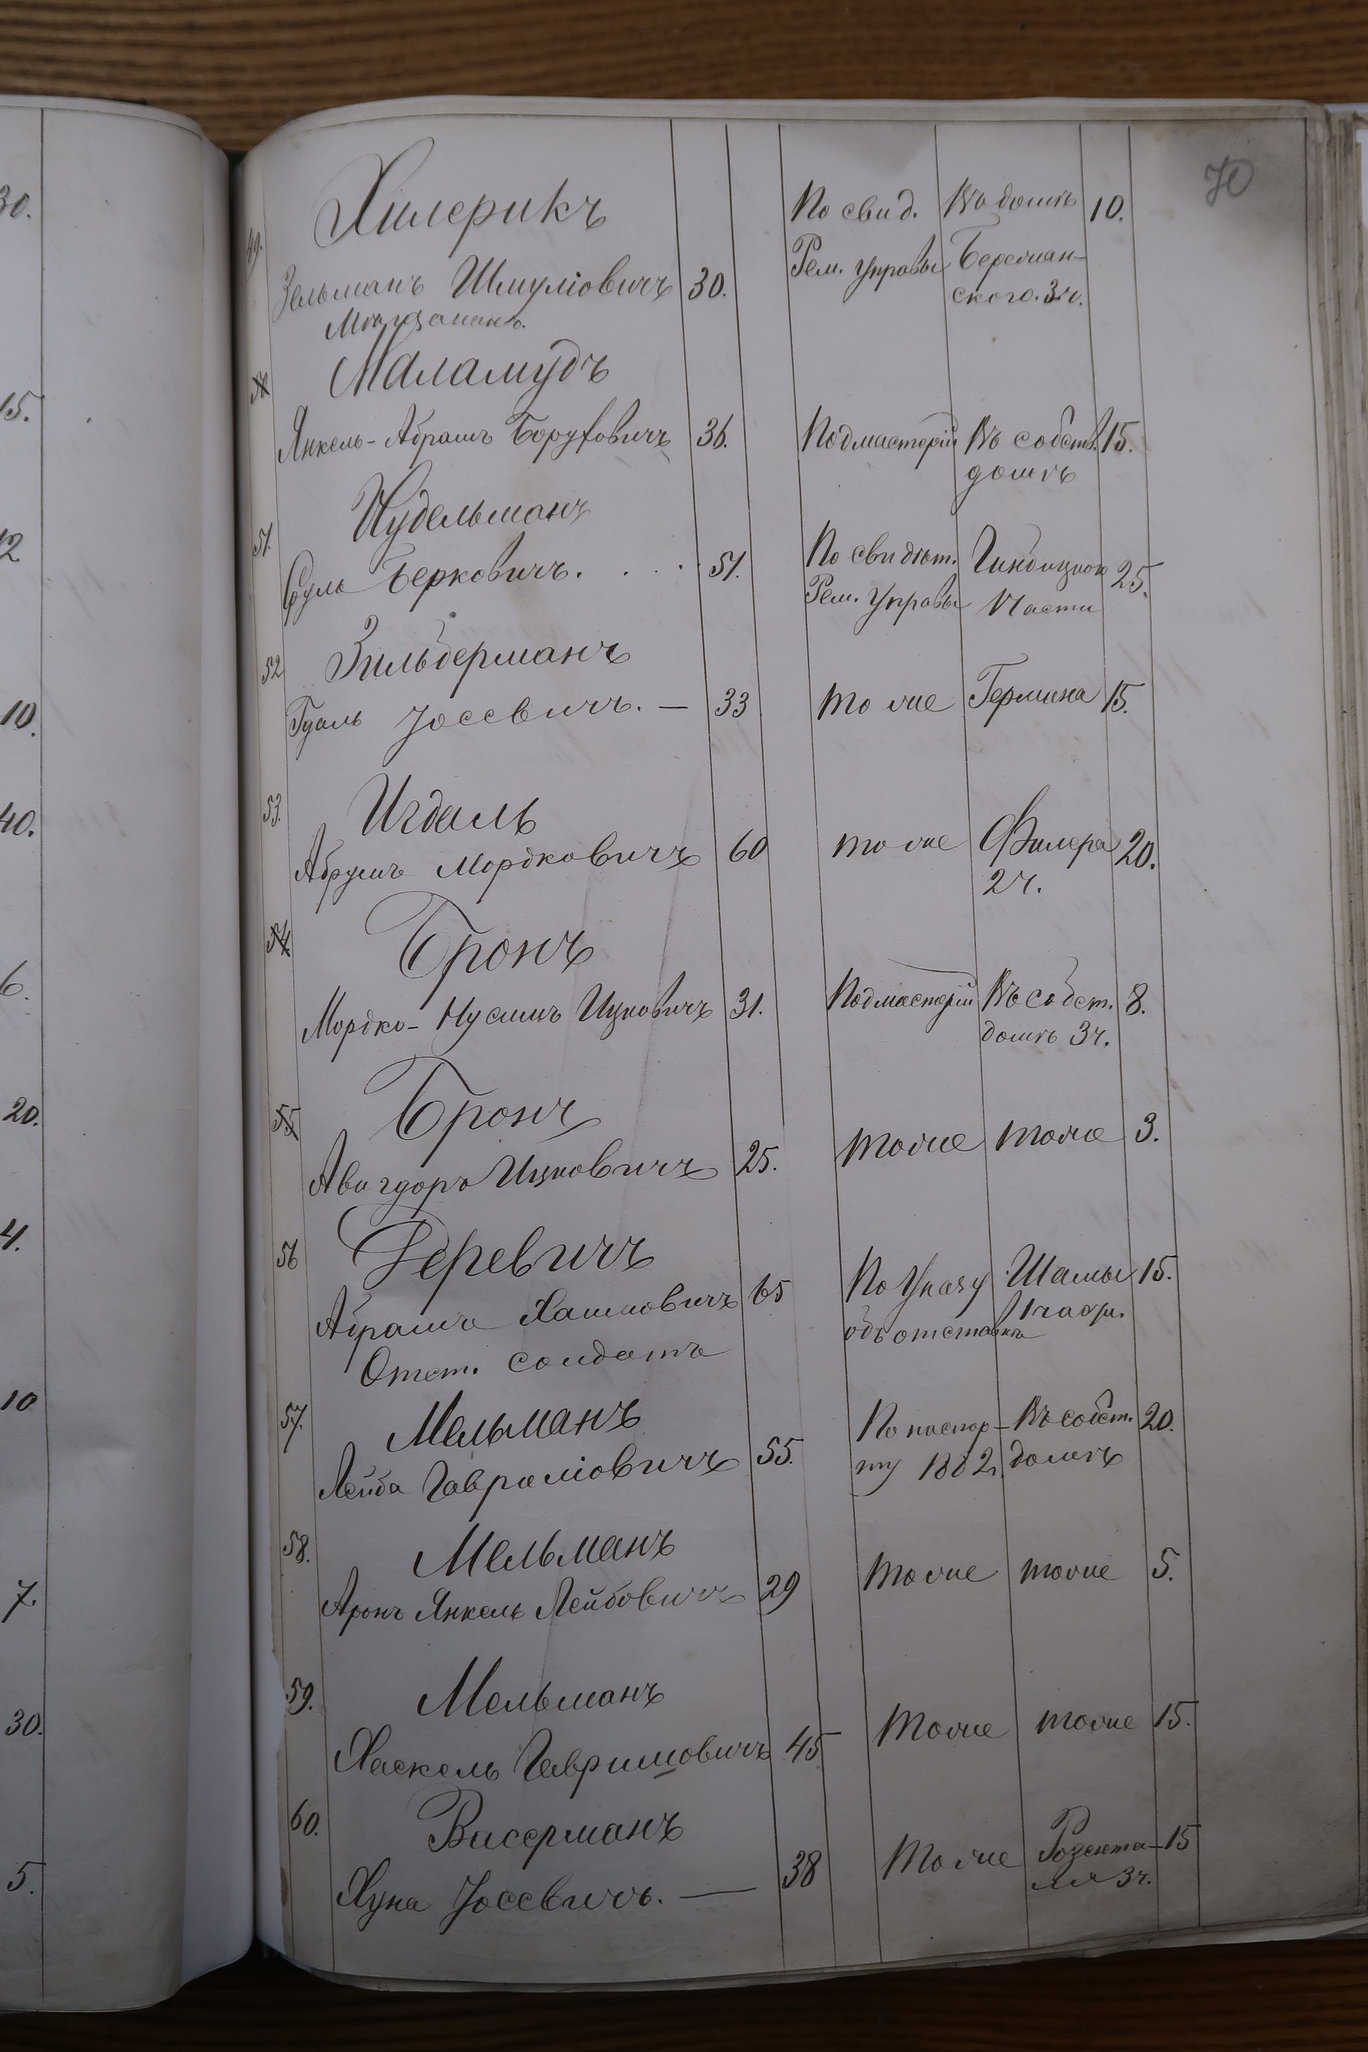 70
30.
15.
12
10.
40.
6.
20.
4.
10
7.
30.
5.
49. Хилерикъ
Зельманъ Шмуліовичъ 30. По свид. Рем. Управы Въ домѣ Береманскаго. 3ч. 10.
Маламудъ
Янкель-Абрамъ Борухович 36. Подмастерій Въ собств. домѣ 15.
51. Нудельманъ
Сруль Берковичъ. . . . 51. По свидѣт. Рем. Управы Части 25.
52 Зильберманъ
Гдаль Іосевичъ. — 33 тоже Германа 15.
53. Игдаль
Абрумъ Мордковичъ 60 тоже Филера 2ч. 20.
54 Бронъ
Мордко-Нусимъ Ицковичъ 31. Подмастерій Въ собст. домѣ 3ч. 8.
55 Бронъ
Авигдоръ Ицковичъ 25. тоже тоже 3.
56 Деревичъ
Абрамъ Хаимовичъ 65 По Указу объ отставкѣ 15.
Отст. солдатъ
57. Мельманъ
Лейба Гавриліовичъ 55. По паспорту 1882г. Въ собст. домѣ 20.
58. Мельманъ
Аронъ Янкель Лейбовичъ 29 тоже тоже 5.
59. Мельманъ
Хаскель Гавриловичъ 45 тоже тоже 15.
60. Висерманъ
Хуна Іосевичъ. — 38 тоже Розенталя 3ч. 15